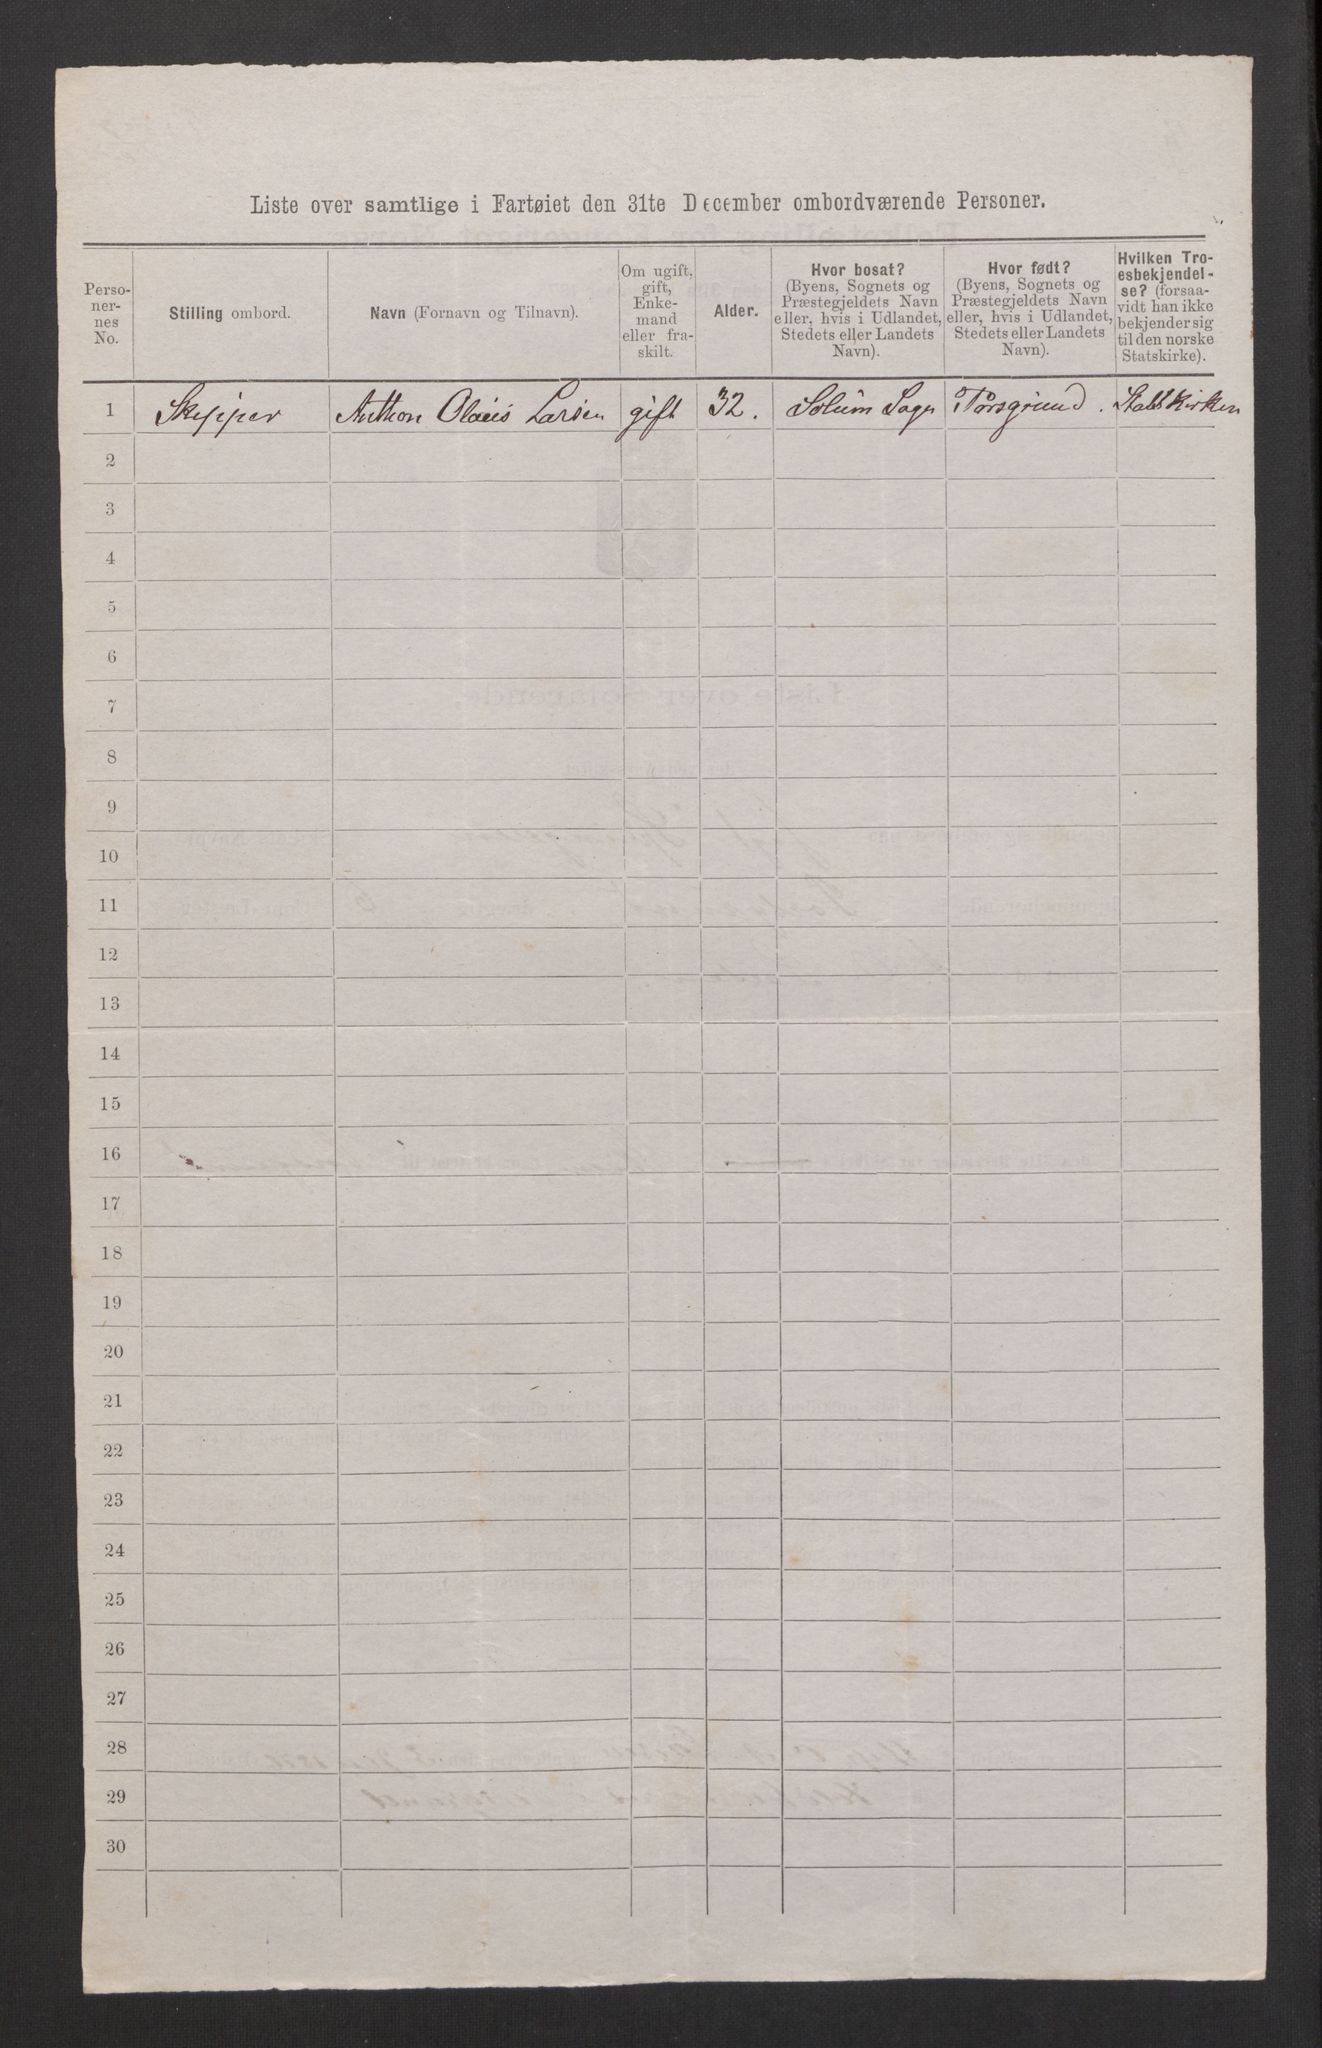 Liste over samtlige i Fartøiet den 31te December ombordværende Personer.
Perso-
ner-
nes
No.
Stilling ombord.
Navn (Fornavn og Tilnavn).
Om ugift,
gift,
Enke-
mand
eller fra-
skilt.
Alder.
Hvor bosat?
(Byens, Sognets og
Præstegjeldets Navn
eller, hvis i Udlandet,
Stedets eller Landets
Navn).
Hvor født?
(Byens, Sognets og
Præstegjeldets Navn
eller, hvis i Udlandet,
Stedets eller Landets
Navn).
Hvilken Tro-
esbekjendel-
se? (forsaa-
vidt han ikke
bekjender sig
til den norske
Statskirke).
1 Skipper Anthon Olaus Larsen gift 32. Solum Sogn Porsgrund. Statskirken
2
3
4
5
6
7
8
9
10
11
12
13
14
15
16
17
18
19
20
21
22
23
24
25
26
27
28
29
30